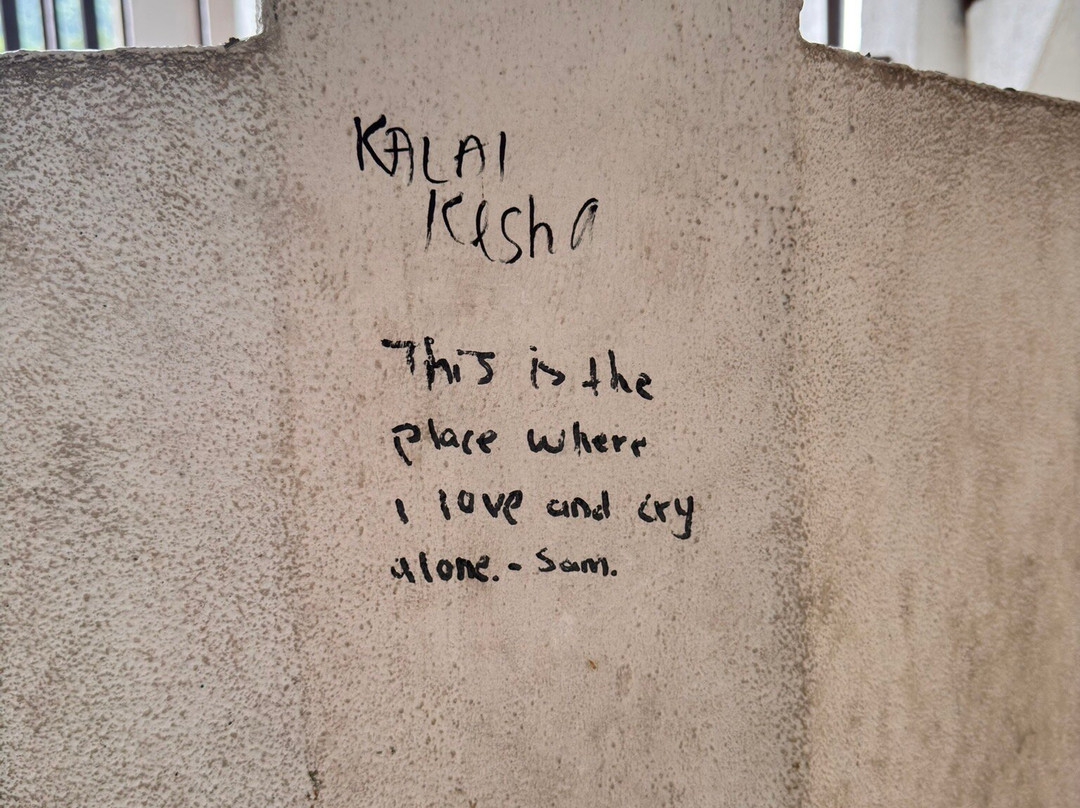 KALAI
Kesha
This is the
place where
i love and cry
alone. - Sam.